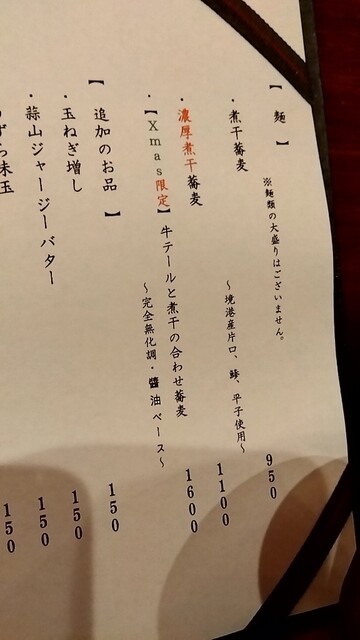 【 麺 】 ※麺類の大盛りはございません。
・煮干蕎麦 ～境港産片口、鯵、平子使用～ 950
・濃厚煮干蕎麦 1100
・【Xmas限定】牛テールと煮干の合わせ蕎麦 1600
～完全無化調・醬油ベース～
【 追加のお品 】
・玉ねぎ増し 150
・蒜山ジャージーバター 150
ずら味玉 150
150